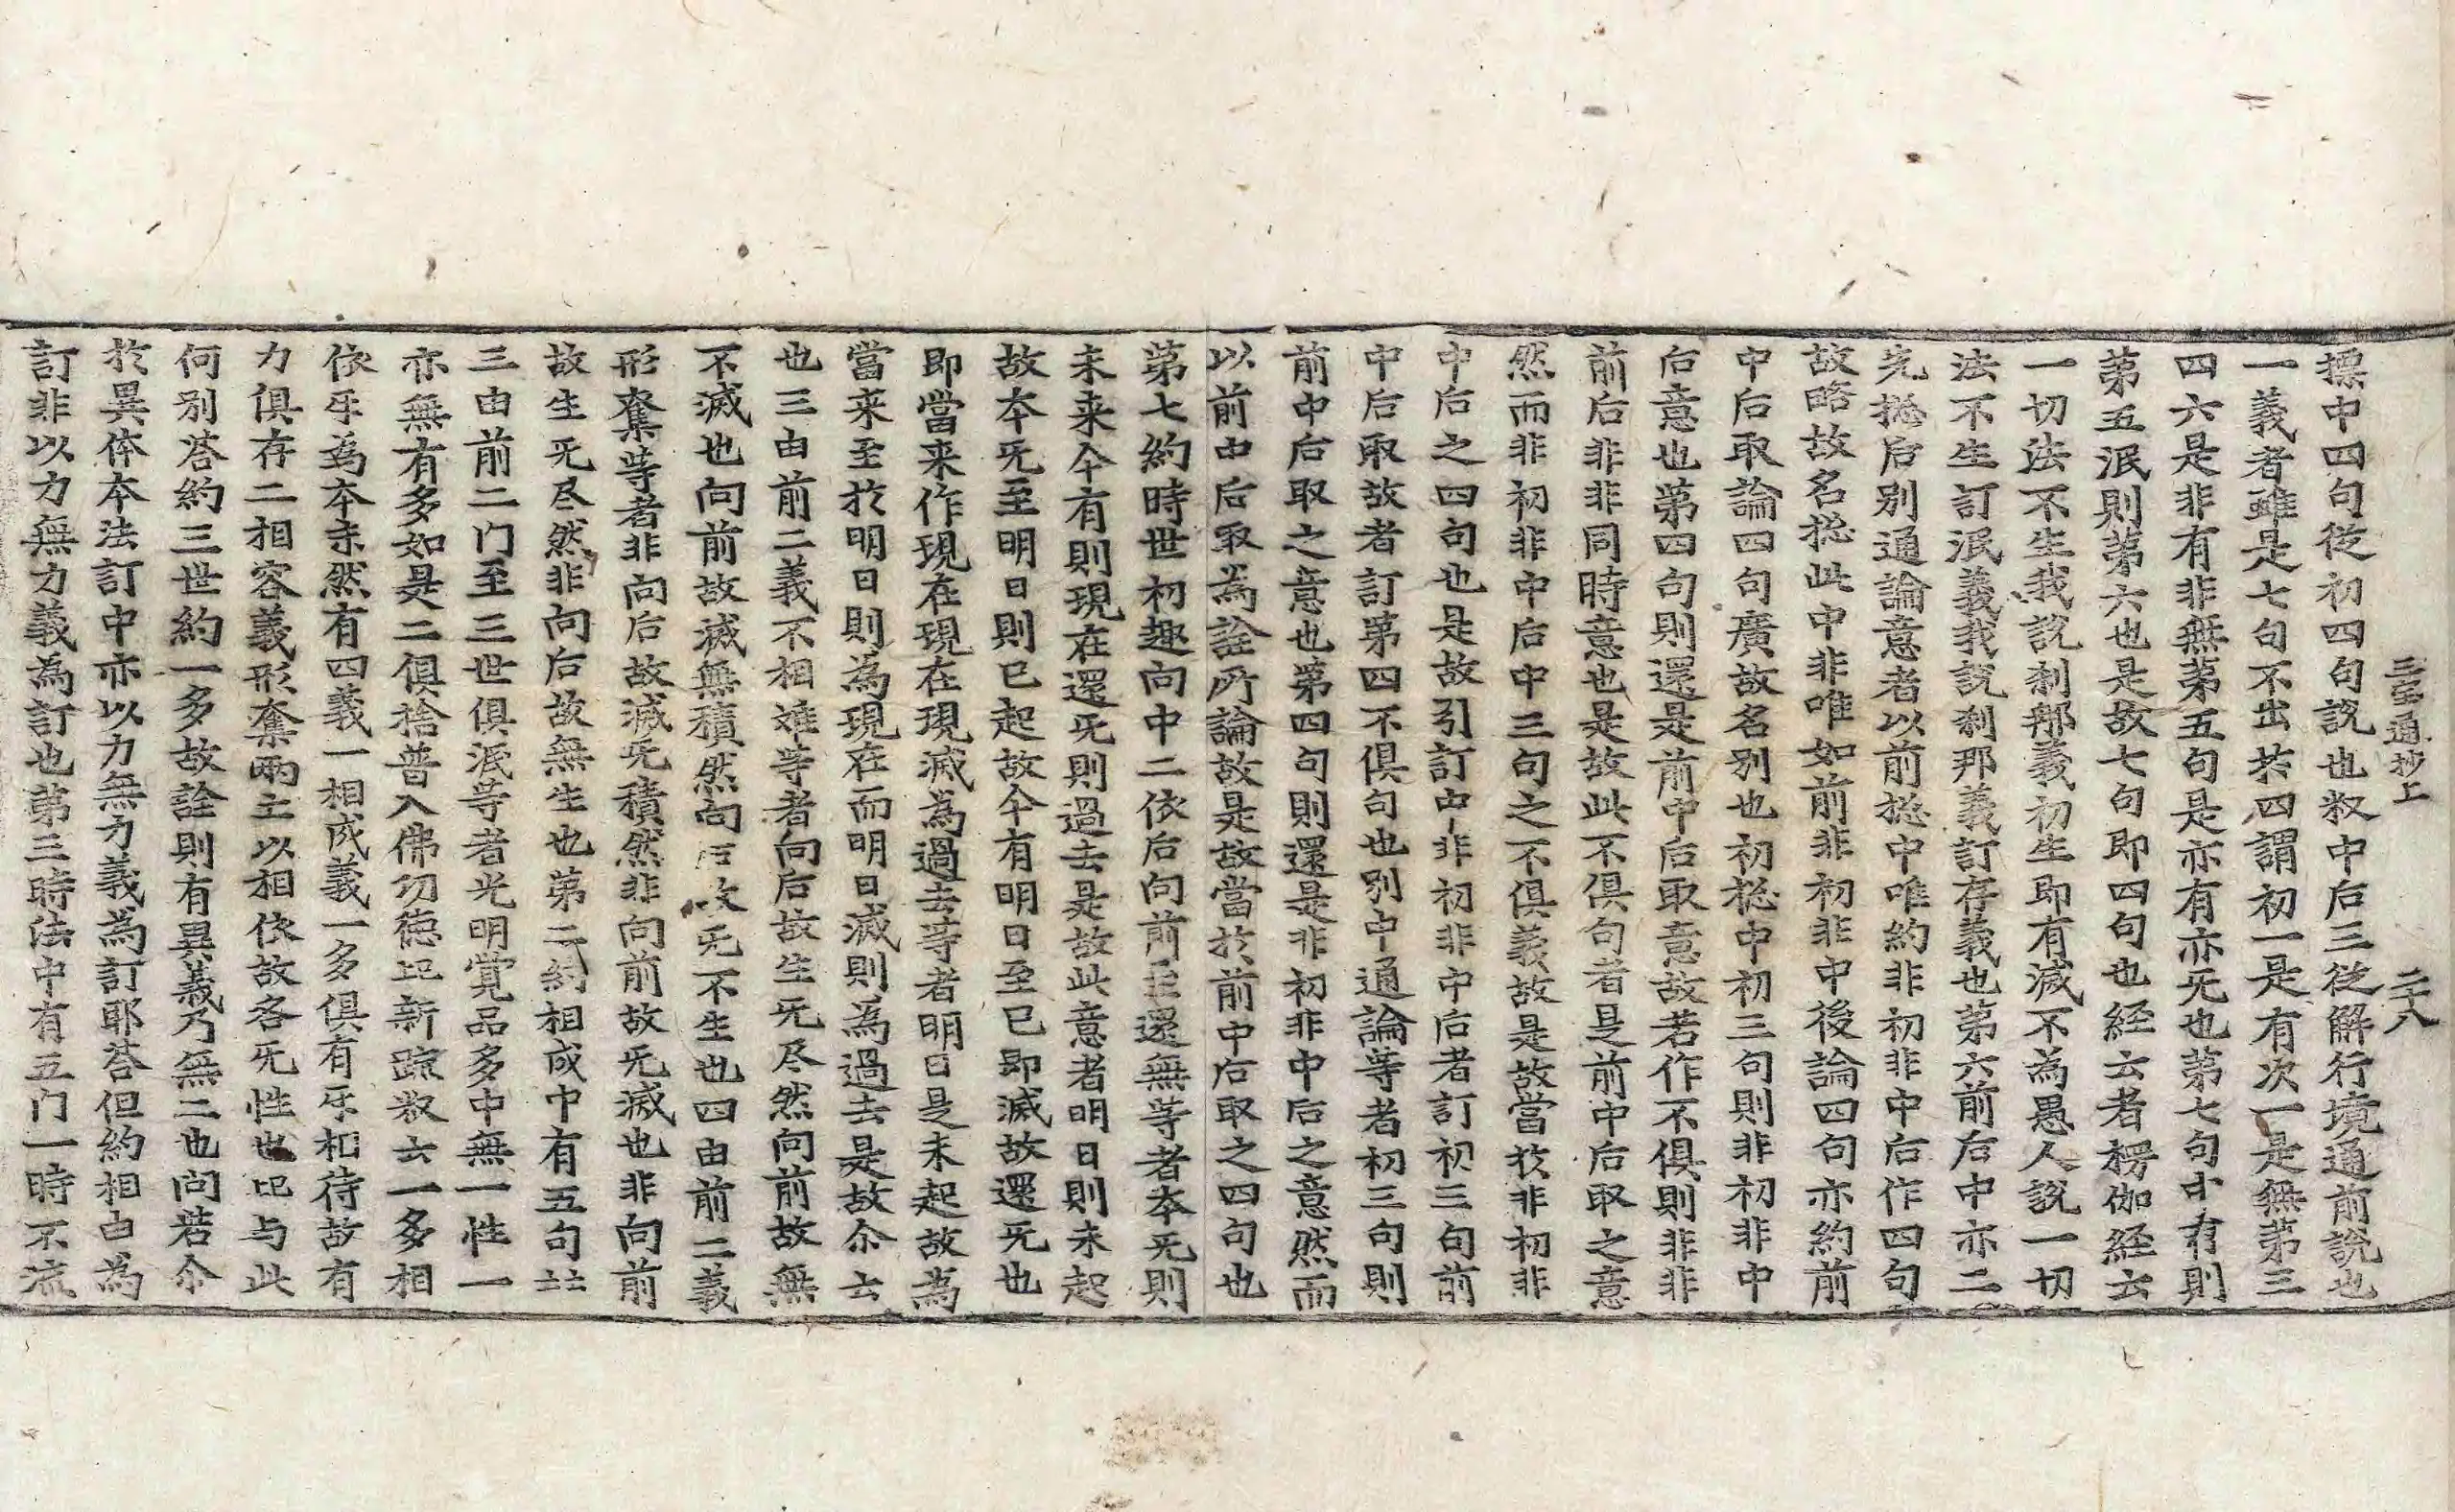 三宝通抄上 二十八
摽中四句從初四句說也叙中后三從解行境通前說也
一義者雖是七句不出於四謂初一是有次一是無第三
四六是非有非無第五句是亦有亦无也第七句中有則
第五泯則第六也是故七句即四句也経云者楞伽経云
一切法不生我說刹那義初生即有滅不為愚人說一切
法不生訂泯義我說刹那義訂存義也第六前后中亦二
先摠后別通論意者以前摠中唯約非初非中后作四句
故略故名摠此中非唯如前非初非中後論四句亦約前
中后取論四句廣故名別也初摠中初三句則非初非中
后意也第四句則還是前中后取意故若作不俱則非非
前后非非同時意也是故此不俱句者是前中后取之意
然而非初非中后中三句之不俱義故是故當於非初非
中后之四句也是故引訂中非初非中后者訂初三句前
中后取故者訂第四不俱句也別中通論等者初三句則
前中后取之意也第四句則還是非初非中后之意然而
以前中后取為詮所論故是故當於前中后取之四句也
第七約時世初趣向中二依后向前至還無等者本无則
未来今有則現在還无則過去是故此意者明日則未起
故本无至明日則已起故今有明日至已即滅故還无也
即當来作現在現在現滅為過去等者明日是未起故為
當来至於明日則為現在而明日滅則為過去是故尒云
也三由前二義不相難等者向后故生无尽然向前故無
不滅也向前故滅無積然向后故无不生也四由前二義
形奪等者非向后故滅无積然非向前故无滅也非向前
故生无尽然非向后故無生也第二約相成中有五句䒑
三由前二门至三世俱泯等者光明覚品多中無一性一
亦無有多如是二俱捨普入佛功德記新䟽叙云一多相
依牙為本末然有四義一相成義一多俱有牙相待故有
力俱存二相容義形奪兩主以相依故各无性也記与此
何別荅約三世約一多故詮則有異義乃無二也問若尒
於異体本法訂中亦以力無力義為訂耶荅但約相由為
訂非以力無力義為訂也第三時法中有五门一時不流